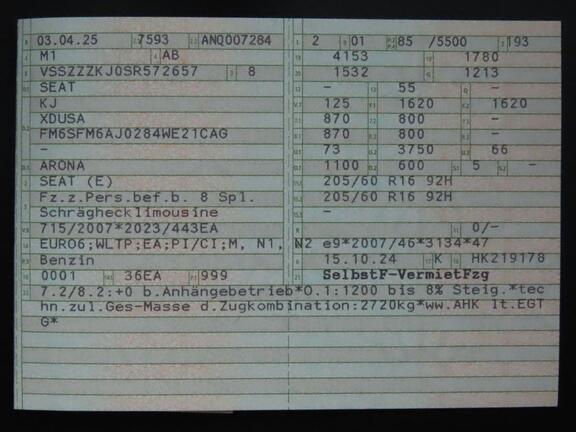 03.04.25 7593 ANQ007284 2 01 85 /5500 193
M1 AB 4153 1780
VSSZZZKJ0SR572657 8 1532 1213
SEAT - 55 -
KJ 125 1620 1620
XDUSA 870 800 -
FM6SFM6AJ0284WE21CAG 870 800 -
- 73 3750 66
ARONA 1100 600 5 -
SEAT (E) 205/60 R16 92H
Fz.z.Pers.bef.b. 8 Spl. 205/60 R16 92H
Schräghecklimousine -
715/2007*2023/443EA 0/-
EURO6;WLTP;EA;PI/CI;M, N1, N2 e9*2007/46*3134*47
Benzin 15.10.24 K HK219178
0001 36EA 999 SelbstF-VermietFzg
7.2/8.2:+0 b.Anhängebetrieb*O.1:1200 bis 8% Steig.*tec
hn.zul.Ges-Masse d.Zugkombination:2720kg*ww.AHK lt.EGT
G*